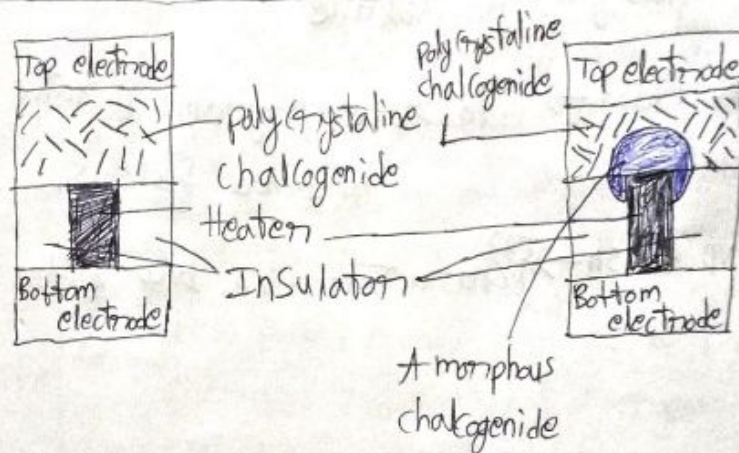 Top electrode
polycrystaline
chalcogenide
Heater
Insulator
Bottom
electrode
polycrystaline
chalcogenide
Top electrode
Bottom
electrode
Amorphous
chalcogenide